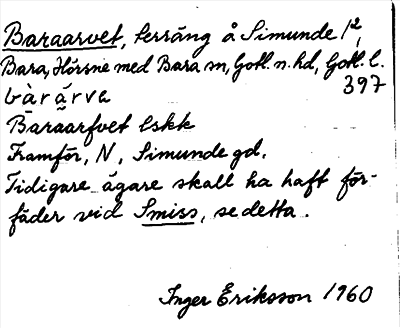 Baraarvet, terräng å Simunde 1²,
Bara, Hörsne med Bara sn, Gotl. n. hd, Gotl. l.
397
bàrárva
Baraarfvet lskk
Framför, N, Simunde gd.
Tidigare ägare skall ha haft för-
fäder vid Smiss, se detta.
Inger Eriksson 1960